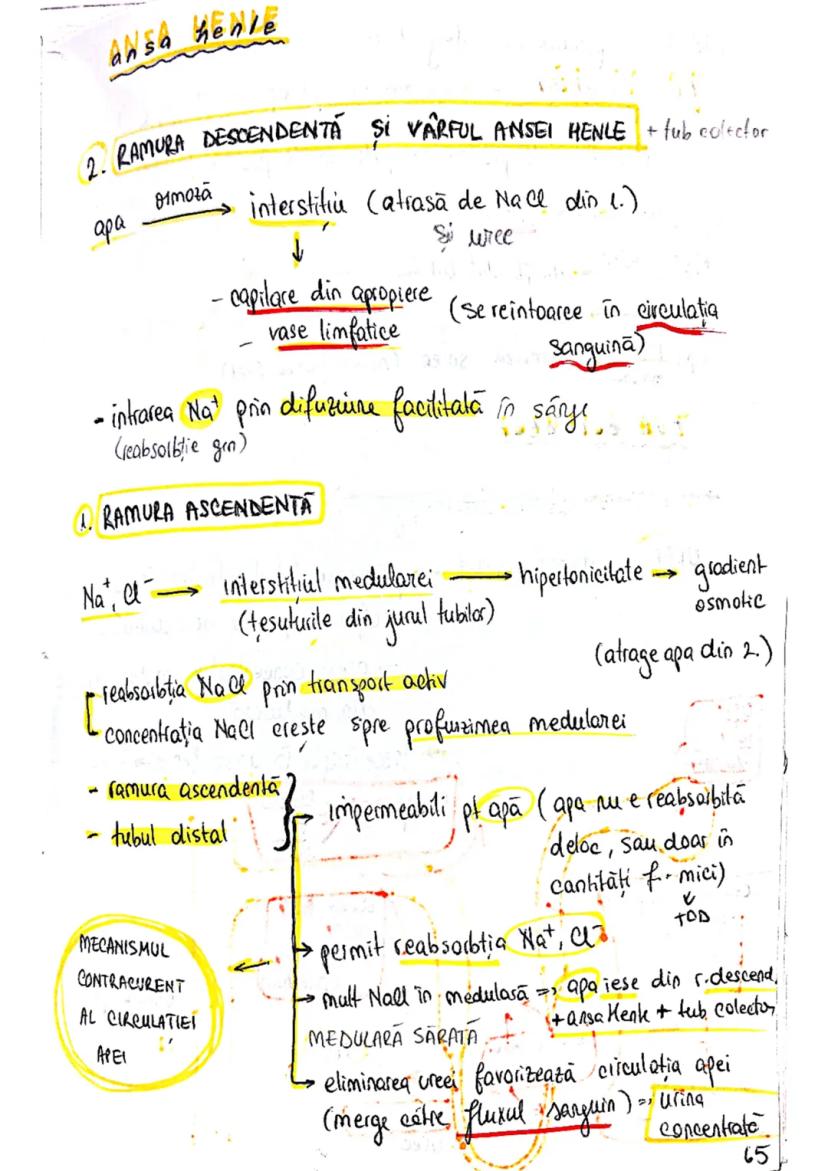 ANSA HENLE
ansa henle
2. RAMURA DESCENDENTĂ ȘI VÂRFUL ANSEI HENLE + tub colector
apa osmoză → interstițiu (atrasă de NaCl din 1.)
și uree
↓
- capilare din apropiere
- vase limfatice
(se reîntoarce în circulația
sanguină)
- intrarea Na⁺ prin difuziune facilitată în sânge
(reabsorbție gen)
1. RAMURA ASCENDENTĂ
Na⁺, Cl⁻ → interstițiul medularei → hipertonicitate → gradient
osmotic
(țesuturile din jurul tubilor)
(atrage apa din 2.)
reabsorbția NaCl prin transport activ
concentrația NaCl crește spre profunzimea medularei
- ramura ascendentă
- tubul distal
→ impermeabili pt apă (apa nu e reabsorbită
deloc, sau doar în
cantități f. mici)
↓
TCD
→ permit reabsorbția Na⁺, Cl⁻
→ mult NaCl în medulară => apa iese din r. descend.
+ ansa Henle + tub colector
MEDULARĂ SĂRATĂ
→ eliminarea ureei favorizează circulația apei
(merge către fluxul sanguin) => urină
concentrată
MECANISMUL
CONTRACURENT
AL CIRCULAȚIEI
APEI
65